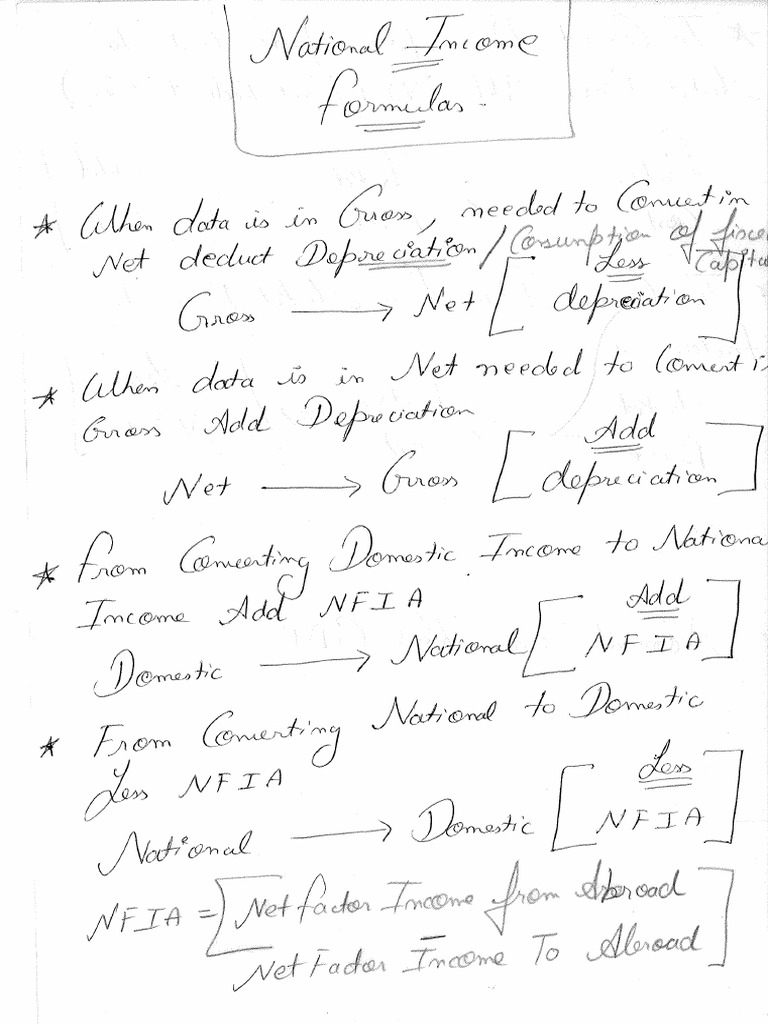 National Income
formulas.
* When data is in Gross, needed to Convert in
Net deduct Depreciation / Consumption of
Less Capita
Gross → Net [ depreciation ]
* When data is in Net needed to Convert i
Gross Add Depreciation
Add
Net → Gross [ depreciation ]
* From Converting Domestic Income to Nationa
Income Add NFIA
Add
Domestic → National [ NFIA ]
* From Converting National to Domestic
Less NFIA
Less
National → Domestic [ NFIA ]
NFIA = [ Net factor Income from Abroad
–
Net Factor Income To Abroad ]